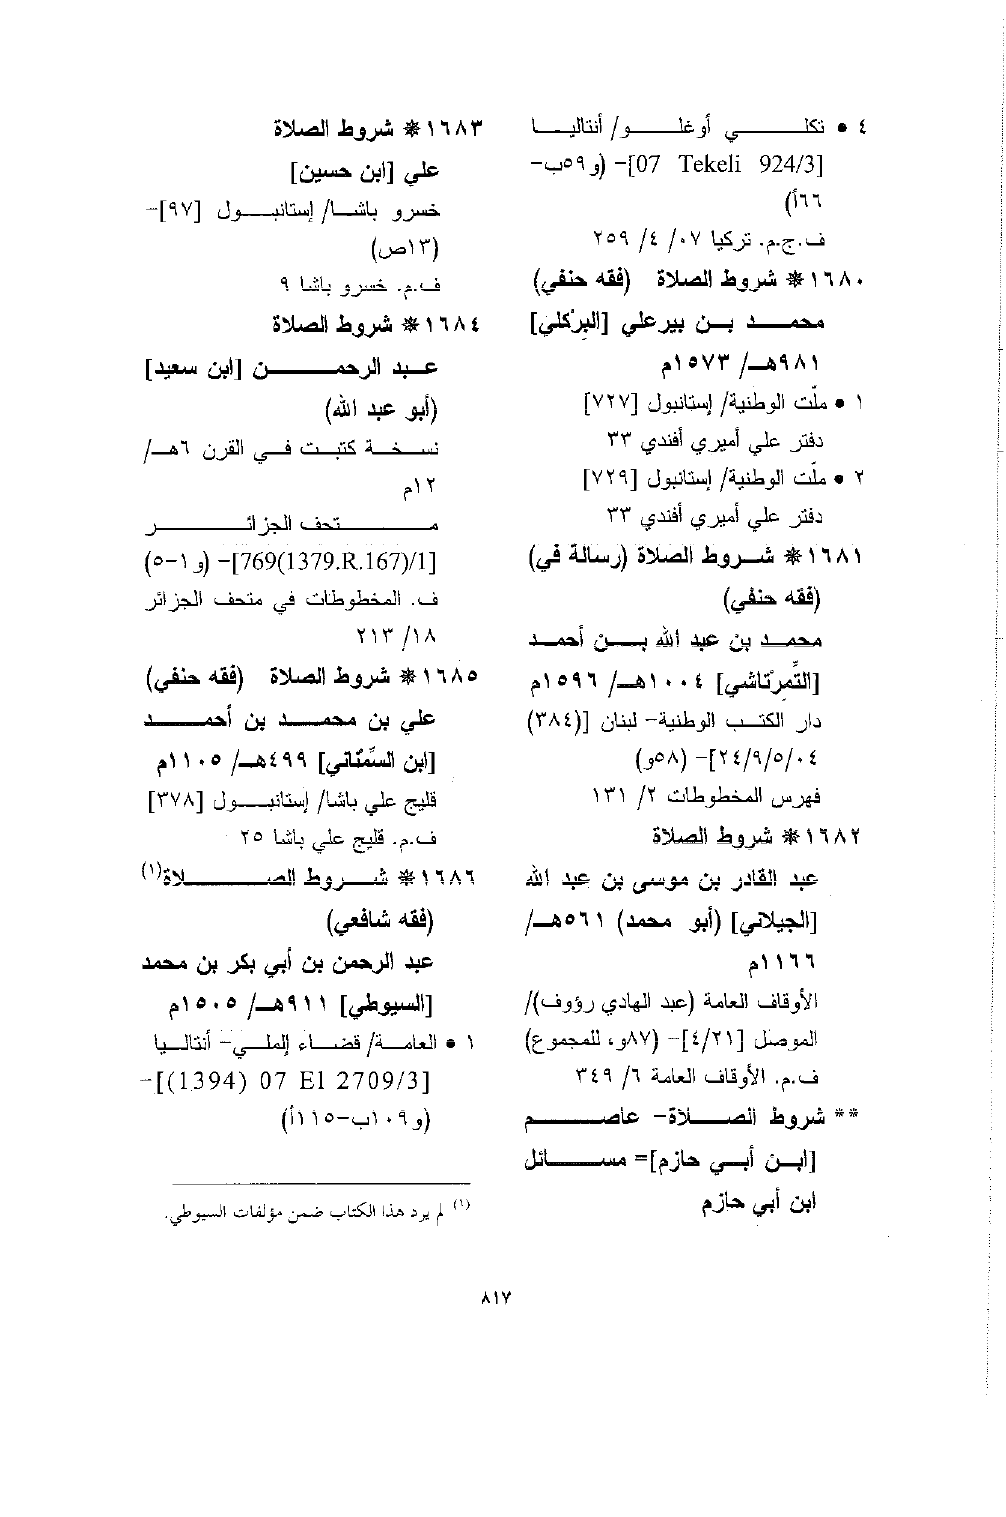 ٤ • تكلي أوغلو/ أنتاليا
[07 Tekeli 924/3]- (و٥٩ب-
٦٦أ)
ف.ج.م. تركيا ٠٧/ ٤/ ٢٥٩
١٦٨٠ * شروط الصلاة (فقه حنفي)
محمد بن بيرعلي [البِرْكلي]
٩٨١هـ/ ١٥٧٣م
١ • ملّت الوطنية/ إستانبول [٧٢٧]
دفتر علي أميري أفندي ٣٣
٢ • ملّت الوطنية/ إستانبول [٧٢٩]
دفتر علي أميري أفندي ٣٣
١٦٨١ * شروط الصلاة (رسالة في)
(فقه حنفي)
محمد بن عبد الله بن أحمد
[التُّمِرْتاشي] ١٠٠٤هـ/ ١٥٩٦م
دار الكتب الوطنية- لبنان [(٣٨٤)
٢٤/٩/٥/٠٤]- (٥٨و)
فهرس المخطوطات ٢/ ١٣١
١٦٨٢ * شروط الصلاة
عبد القادر بن موسى بن عبد الله
[الجيلاني] (أبو محمد) ٥٦١هـ/
١١٦٦م
الأوقاف العامة (عبد الهادي رؤوف)/
الموصل [٤/٢١]- (٨٧و، للمجموع)
ف.م. الأوقاف العامة ٦/ ٣٤٩
** شروط الصلاة- عاصم
[ابن أبي حازم]= مسائل
ابن أبي حازم
١٦٨٣ * شروط الصلاة
علي [ابن حسين]
خسرو باشا/ إستانبول [٩٧]-
(١٣ص)
ف.م. خسرو باشا ٩
١٦٨٤ * شروط الصلاة
عبد الرحمن [ابن سعيد]
(أبو عبد الله)
نسخة كتبت في القرن ٦هـ/
١٢م
متحف الجزائر
[769(1379.R.167)/1]- (و١-٥)
ف. المخطوطات في متحف الجزائر
١٨/ ٢١٣
١٦٨٥ * شروط الصلاة (فقه حنفي)
علي بن محمد بن أحمد
[ابن السِّمْناني] ٤٩٩هـ/ ١١٠٥م
قليج علي باشا/ إستانبول [٣٧٨]
ف.م. قليج علي باشا ٢٥
١٦٨٦ * شروط الصلاة(١)
(فقه شافعي)
عبد الرحمن بن أبي بكر بن محمد
[السيوطي] ٩١١هـ/ ١٥٠٥م
١ • العامة/ قضاء إلملي- أنتاليا
[07 El 2709/3 (1394)]-
(و١٠٩ب-١١٥أ)
(١) لم يرد هذا الكتاب ضمن مؤلفات السيوطي.
٨١٧